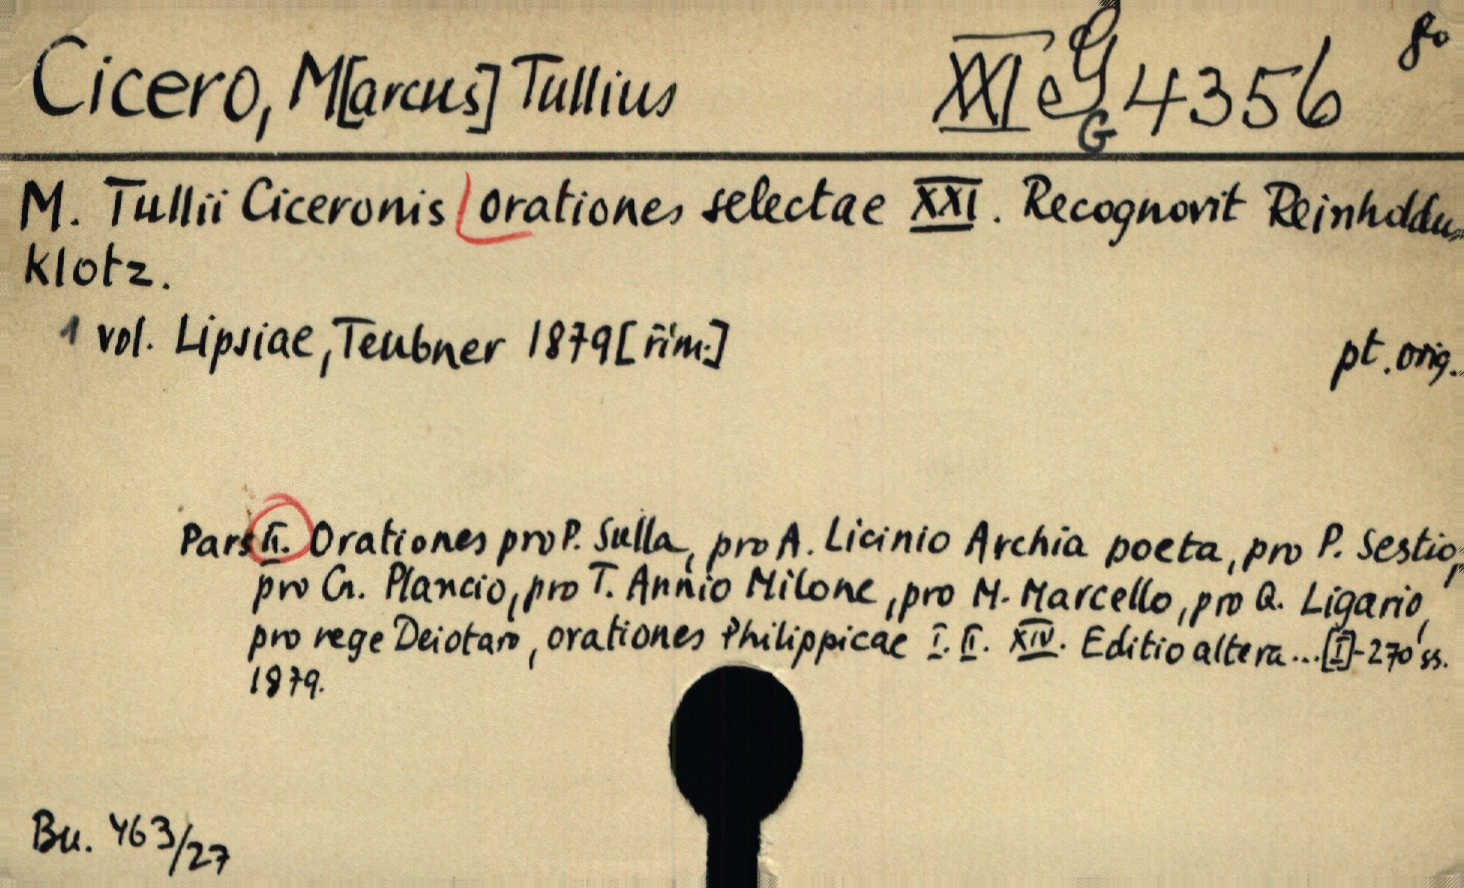 Cicero, M[arcus] Tullius
XXI G 4356 8o
G
M. Tullii Ciceronis Orationes selectae XXI. Recognovit Reinholdus
Klotz.
1 vol. Lipsiae, Teubner 1879 [řím.]
pt. orig.
Pars II. Orationes pro P. Sulla, pro A. Licinio Archia poeta, pro P. Sestio,
pro Cn. Plancio, pro T. Annio Milone, pro M. Marcello, pro Q. Ligario,
pro rege Deiotaro, orationes Philippicae I. II. XIV. Editio altera... [I]-270 ss.
1879.
Bu. 463/27